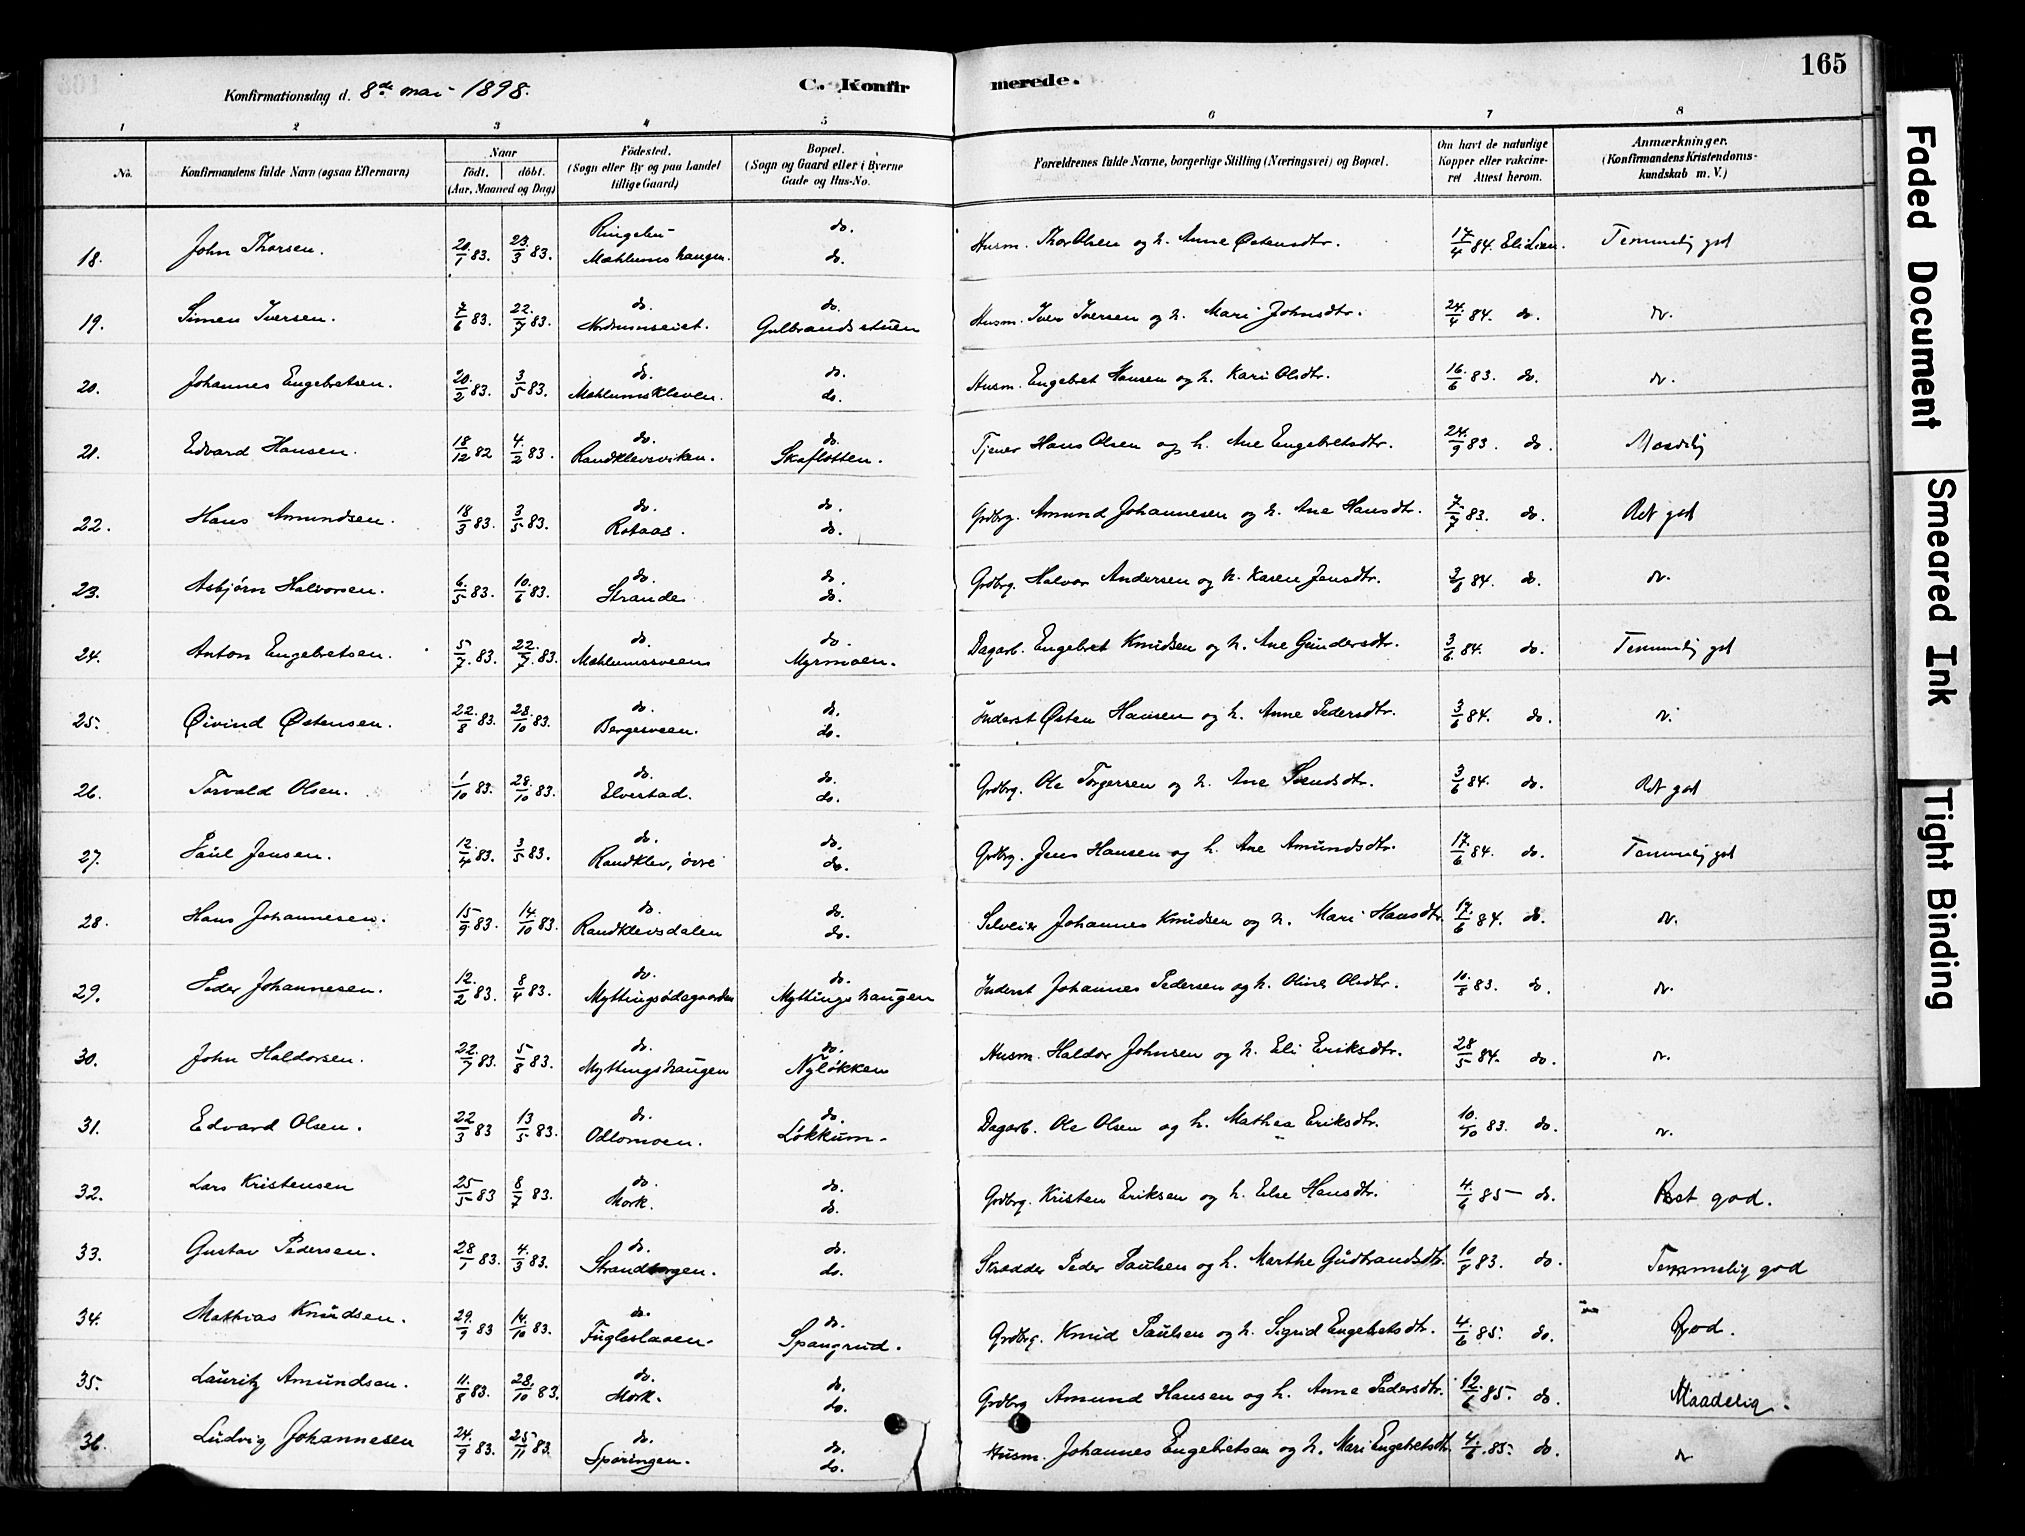 165
Konfirmationsdag d. 8de mai 1898.
C. Konfirmerede.
1 2 3 4 5 6 7 8
No.
Konfirmandens fulde Navn (ogsaa Efternavn)
Naar
födt. döbt.
(Aar, Maaned og Dag)
Födested.
(Sogn eller By og paa Landet
tillige Gaard)
Bopæl.
(Sogn og Gaard eller i Byerne
Gade og Hus-No.
Forældrenes fulde Navne, borgerlige Stilling (Næringsvei) og Bopæl.
Om havt de naturlige
Kopper eller vakcine-
ret Attest herom.
Anmærkninger.
(Konfirmandens Kristendoms-
kundskab m. V.)
18. John Thorsen. 20/1 83. 23/3 83. Ringebu Mæhlumshaugen. do. do. Husm. Thor Olsen og h. Anne Østensdtr. 17/4 84. Eli Lien. Temmelig god
19. Simen Iversen. 7/6 83. 22/7 83. do. Nordrumseiet. do. Gulbrandsstuen Husm. Iver Iversen og h. Mari Johnsdtr. 24/4 84. do. do.
20. Johannes Engebretsen. 20/2 83. 3/5 83. do. Mæhlumskleven. do. do. Husm. Engebret Hansen og h. Kari Olsdtr. 16/6 83. do. do.
21. Edvard Hansen. 18/12 82 4/2 83. do. Randklevsviken. do. Skaflotten. Tjener Hans Olsen og h. Ane Engebretsdtr. 24/9 83. do. Maadelig
22. Hans Amundsen. 18/3 83. 3/5 83. do. Rotaas. do. do. Grdbrg. Amund Johannesen og h. Ane Hansdtr. 7/7 83. do. Ret god
23. Asbjørn Halvorsen. 6/5 83. 10/6 83. do. Strande. do. do. Grdbrg. Halvor Andersen og h. Karen Jensdtr. 3/6 84. do. do.
24. Anton Engebretsen. 5/7 83. 22/7 83. do. Mæhlumsveen do. Myrmoen. Dagarb. Engebret Knudsen og h. Ane Gundersdtr. 3/6 84. do. Temmelig god
25. Øivind Østensen. 22/8 83. 28/10 83. do. Bergesveen. do. do. Inderst Østen Hansen og h. Anne Pedersdtr. 3/6 84. do. do.
26. Torvald Olsen. 1/10 83. 28/10 83. do. Elvestad. do. do. Grdbrg. Ole Torgersen og h. Ane Svendsdtr. 3/6 84. do. Ret god
27. Paul Jensen. 12/4 83. 3/5 83. do. Randklev, øvre do. do. Grdbrg. Jens Hansen og h. Ane Amundsdtr. 17/6 84. do. Temmelig god
28. Hans Johannesen. 15/9 83. 14/10 83. do. Randklevsdalen do. do. Selveier Johannes Knudsen og h. Mari Hansdtr. 17/6 84. do. do.
29. Peder Johannesen. 12/2 83. 8/4 83. do. Myttingsødegaarden do. Myttingshaugen Inderst Johannes Pedersen og h. Oline Olsdtr. 10/8 83. do. do.
30. John Haldorsen. 22/7 83. 5/8 83. do. Myttingshaugen do. Nyløkken Husm. Haldor Johnsen og h. Eli Eriksdtr. 28/5 84. do. do.
31. Edvard Olsen. 22/3 83 13/5 83. do. Odlomoen. do. Løkkum. Dagarb. Ole Olsen og h. Mathea Eriksdtr. 10/10 83. do. do.
32. Lars Kristensen 25/5 83 8/7 83. do. Mork. do. do. Grdbrg. Kristen Eriksen og h. Else Hansdtr. 4/6 85 do. Ret god.
33. Gustav Pedersen. 28/1 83. 4/3 83. do. Strandborgen. do. do. Skrædder Peder Paulsen og h. Marthe Gudbrandsdtr. 10/8 83. do. Temmelig god
34. Mathias Knudsen. 29/9 83 14/10 83. do. Fugleslaaen. do. Spangrud. Grdbrg. Knud Paulsen og h. Sigrid Engebretsdtr. 4/6 85. do. God.
35. Lauritz Amundsen. 11/8 83. 28/10 83. do. Mork. do. do. Grdbrg Amund Hansen og h. Anne Pedersdtr. 12/6 85. do. Maadelig.
36. Ludvig Johannesen 24/9 83. 25/11 83. do. Sparingen. do. do. Husm. Johannes Engebretsen og h. Mari Engebretsdtr. 4/6 85. do. do
Faded Document
Smeared Ink
Tight Binding